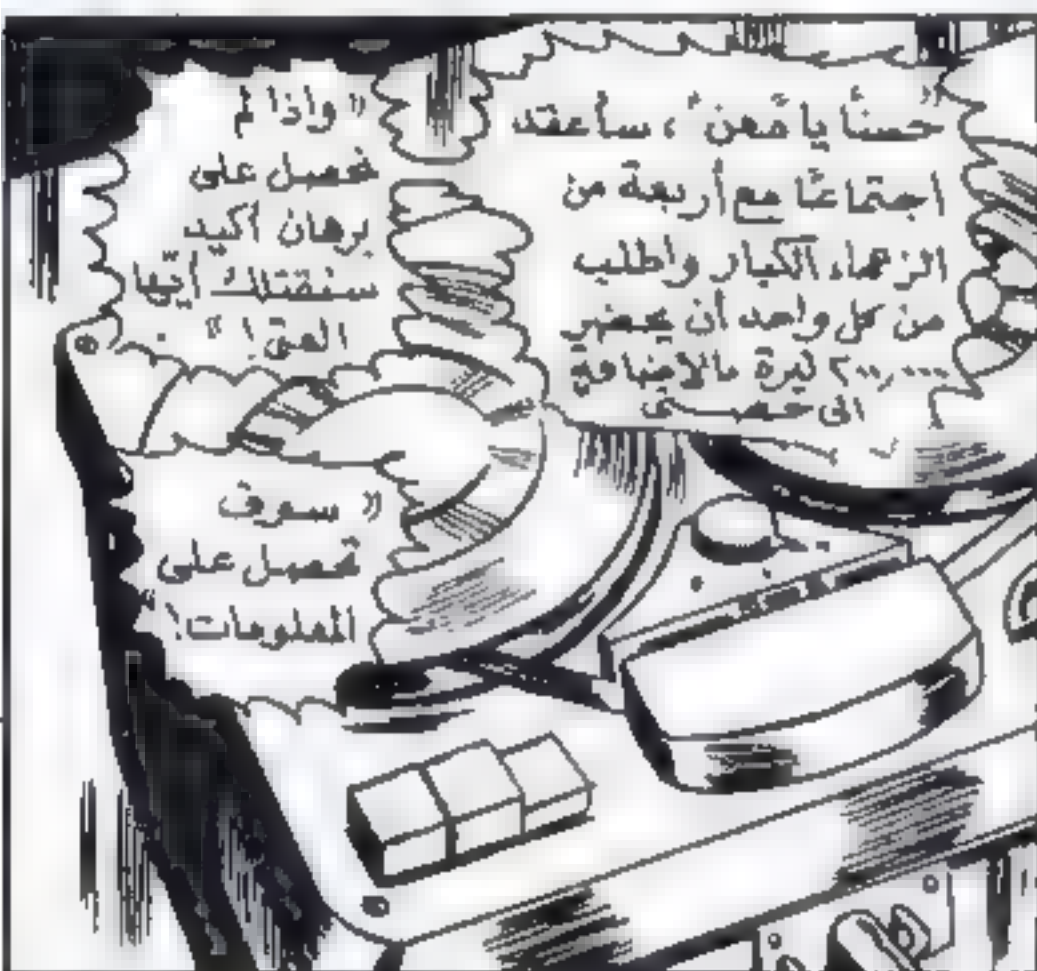 "حسناً يا مَعن"، سأعقد
اجتماعًا مع أربعة من
الزعماء الكبار واطلب
من كل واحد أن يحضر
٢٠٠,٠٠٠ ليرة بالاضافة
الى حصتى
"واذا لم
نحصل على
برهان أكيد
سنقتلك أيّها
الفتى!"
"سوف
تحصل على
المعلومات!